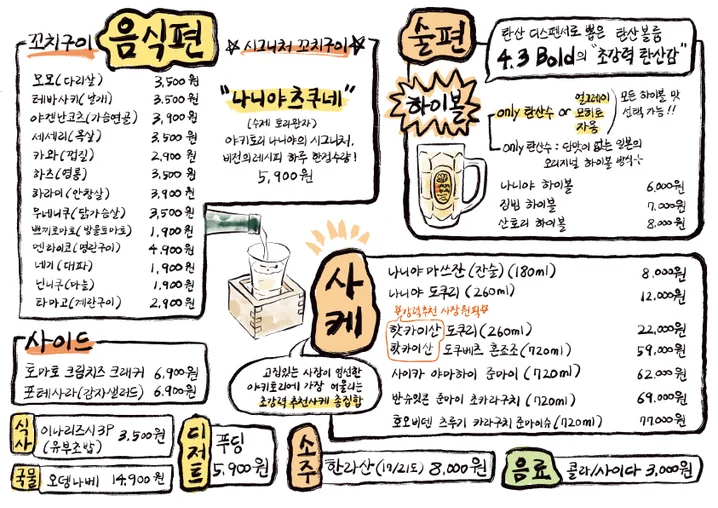 꼬치구이
음식편
모모(다리살) 3,500원
테바사키(날개) 3,500원
야겐난코츠(가슴연골) 3,900원
세세리(목살) 3,500원
카와(껍질) 2,900원
하츠(염통) 3,500원
하라미(안창살) 3,900원
무네니쿠(닭가슴살) 3,500원
쁘띠토마토(방울토마토) 1,900원
멘타이코(명란구이) 4,900원
네기(대파) 1,900원
닌니쿠(마늘) 1,900원
타마고(계란구이) 2,900원
시그니처 꼬치구이
"나니야 츠쿠네"
(수제 토리완자)
야키토리 나니야의 시그니처.
비전의 레시피 하루 한정수량!
5,900원
사이드
토마토 크림치즈 크래커 6,900원
포테사라(감자샐러드) 6,900원
식사
이나리즈시3P
(유부초밥)
3,500원
국물
오뎅나베 14,900원
디저트
푸딩
5,900원
술편
탄산 디스펜서로 뽑은 탄산볼륨
4.3 Bold의 "초강력 탄산감"
하이볼
only 탄산수 or
얼그레이
모히토
자몽
모든 하이볼 맛
선택 가능!!
only 탄산수 : 단맛이 없는 일본의
오리지널 하이볼 방식
나니야 하이볼 6,000원
짐빔 하이볼 7,000원
산토리 하이볼 8,000원
사케
고집있는 사장이 엄선한
야키토리에 가장 어울리는
초강력 추천사케 총집합
나니야 마쓰잔(잔술)(180ml) 8,000원
나니야 도쿠리(260ml) 12,000원
강력추천 사장원픽
핫카이산 도쿠리(260ml) 22,000원
핫카이산 도쿠베즈 혼죠조(720ml) 59,000원
사이카 야마하이 준마이(720ml) 62,000원
반슈잇콘 준마이 초카라구치(720ml) 69,000원
호오비덴 츠루기 카라구치 준마이슈(720ml) 77,000원
소주
한라산(17/21도) 8,000원
음료
콜라/사이다 3,000원